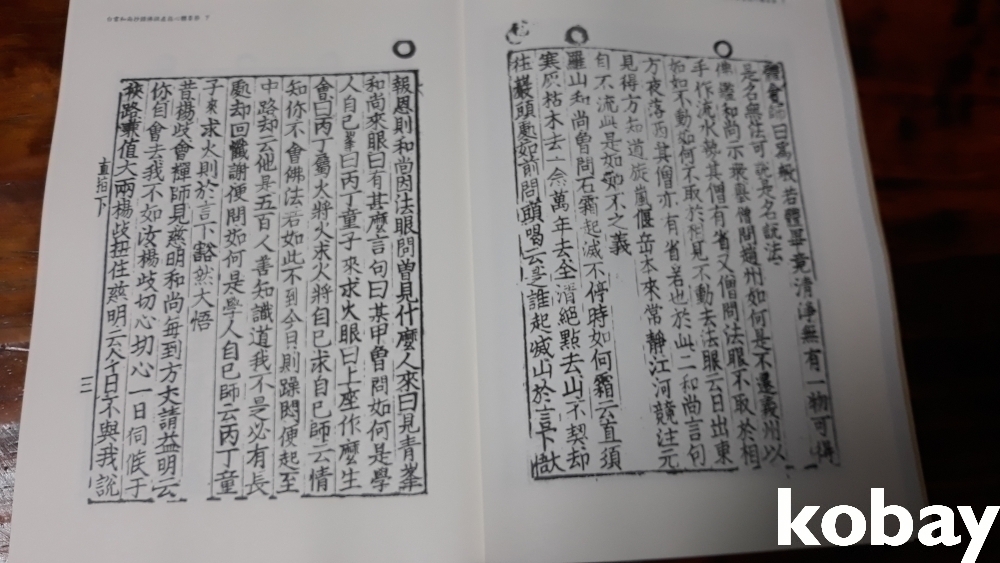 體會師曰爲般若體畢竟清淨無有一物可得
是名無法可說是名說法
佛鑑和尚示衆擧僧問趙州如何是不遷義州以
手作流水勢其僧有省又僧問法眼不取於相
如如不動如何不取於相見不動去法眼云日出東
方夜落西其僧亦有省若也於此二和尚言句
見得方知道旋嵐偃岳本來常靜江河競注元
自不流此是如如不之義
羅山和尚曾問石霜起滅不停時如何霜云直須
寒灰枯木去一念萬年去全清絕點去山不契却
往巖頭處如前問頭喝云是誰起滅山於言下
白雲和尚抄錄佛祖直指心體要節 下
報恩則和尚因法眼問曾見什麼人來曰見青峯
和尚來眼曰有甚麼言句曰某甲曾問如何是學
人自己峯曰丙丁童子來求火眼曰上座作麼生
會曰丙丁屬火將火求火將自己求自己師云情
知你不會佛法若如此不到今日則躁悶便起至
中路却云他是五百人善知識道我不是必有長
處却回懺謝便問如何是學人自己師云丙丁童
子來求火則於言下豁然大悟
昔楊歧會禪師見慈明和尚每到方丈請益明云
你自會去我不如汝楊歧切心切心一日伺候于
挾路乘值大雨楊歧扭住慈明云今日不與我說
直指下
三
kobay